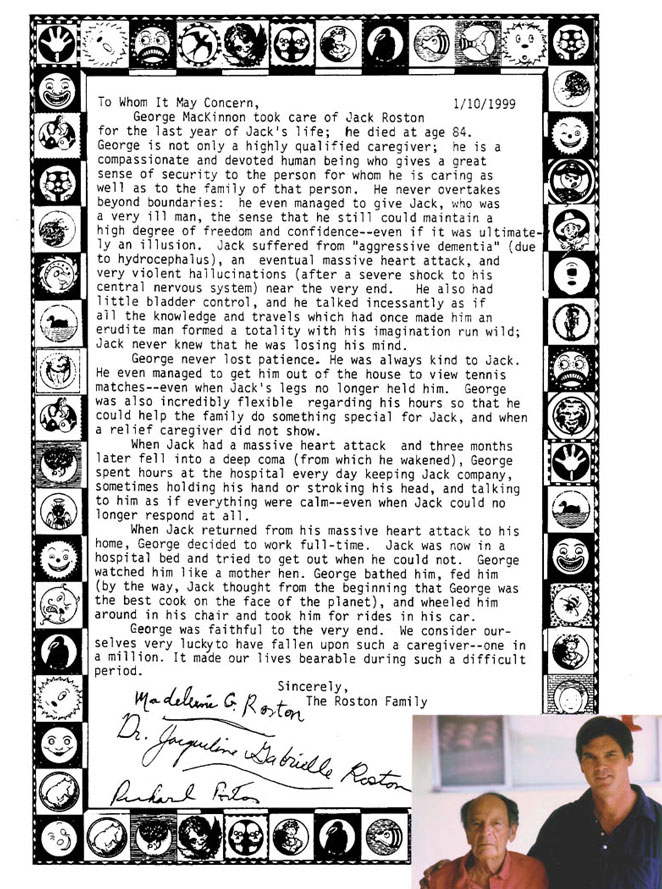 To Whom It May Concern, 1/10/1999
George MacKinnon took care of Jack Roston
for the last year of Jack's life; he died at age 84.
George is not only a highly qualified caregiver; he is a
compassionate and devoted human being who gives a great
sense of security to the person for whom he is caring as
well as to the family of that person. He never overtakes
beyond boundaries: he even managed to give Jack, who was
a very ill man, the sense that he still could maintain a
high degree of freedom and confidence--even if it was ultimate-
ly an illusion. Jack suffered from "aggressive dementia" (due
to hydrocephalus), an eventual massive heart attack, and
very violent hallucinations (after a severe shock to his
central nervous system) near the very end. He also had
little bladder control, and he talked incessantly as if
all the knowledge and travels which had once made him an
erudite man formed a totality with his imagination run wild;
Jack never knew that he was losing his mind.
George never lost patience. He was always kind to Jack.
He even managed to get him out of the house to view tennis
matches--even when Jack's legs no longer held him. George
was also incredibly flexible regarding his hours so that he
could help the family do something special for Jack, and when
a relief caregiver did not show.
When Jack had a massive heart attack and three months
later fell into a deep coma (from which he wakened), George
spent hours at the hospital every day keeping Jack company,
sometimes holding his hand or stroking his head, and talking
to him as if everything were calm--even when Jack could no
longer respond at all.
When Jack returned from his massive heart attack to his
home, George decided to work full-time. Jack was now in a
hospital bed and tried to get out when he could not. George
watched him like a mother hen. George bathed him, fed him
(by the way, Jack thought from the beginning that George was
the best cook on the face of the planet), and wheeled him
around in his chair and took him for rides in his car.
George was faithful to the very end. We consider our-
selves very luckyto have fallen upon such a caregiver--one in
a million. It made our lives bearable during such a difficult
period.
Sincerely,
The Roston Family
Madeleine G. Roston
Dr. Jacqueline Gabrielle Roston
Richard Roston